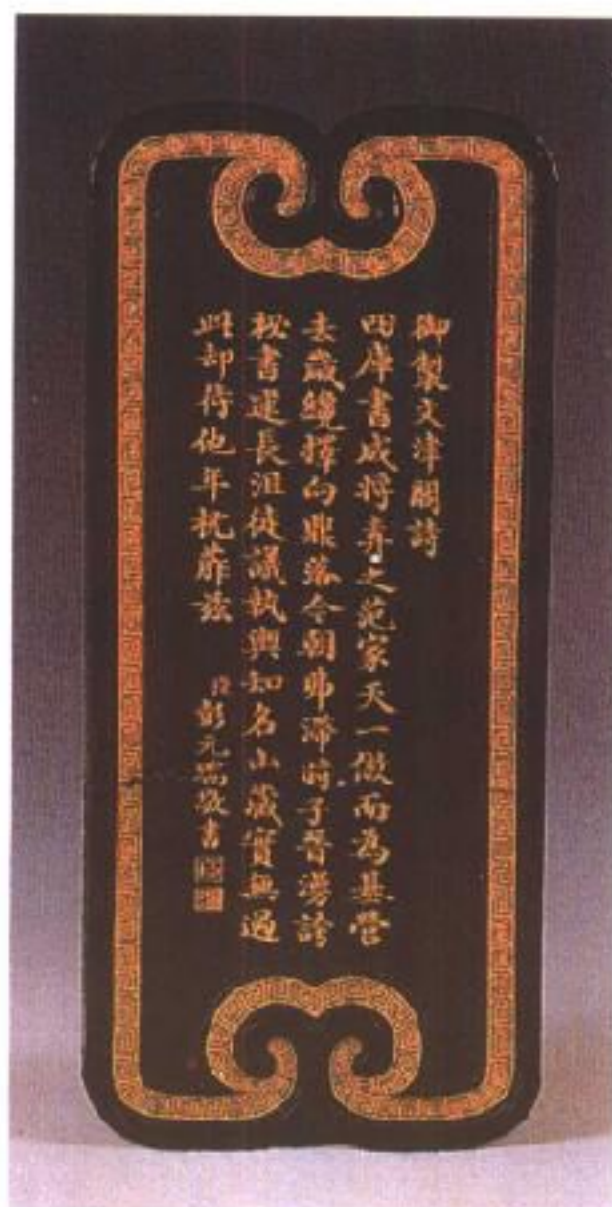 御製文津閣詩
四庫書成將弆之范家天一倣而為基營
去歲纔擇向鼎落今朝弗滯時子晉漫誇
秘書運長沮徒議執輿知名山藏實無過
此却待他年枕葄茲
臣彭元瑞敬書